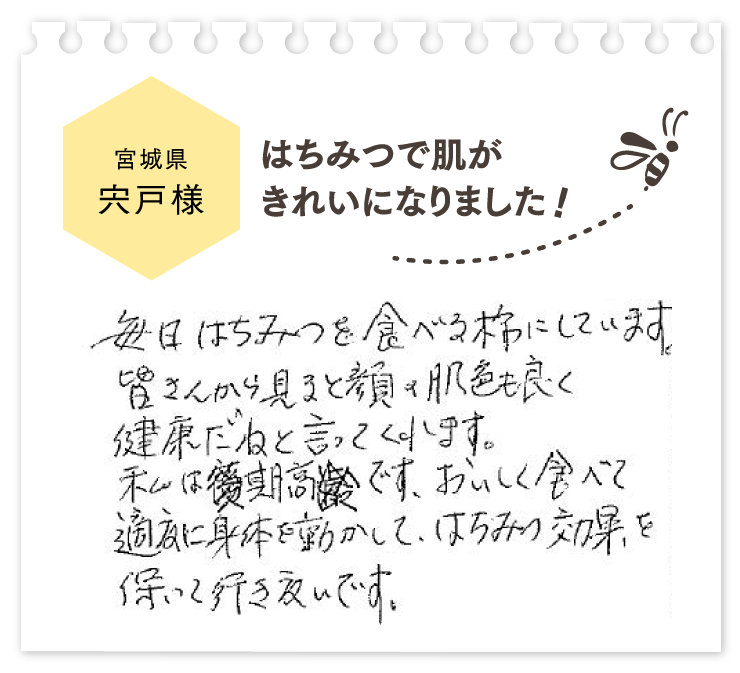 宮城県
宍戸様
はちみつで肌が
きれいになりました!
毎日はちみつを食べる様にしています。
皆さんから見ると顔の肌色も良く
健康だねと言ってくれます。
私は後期高齢です、おいしく食べて
適度に身体を動かして、はちみつ効果を
保って行き度いです。